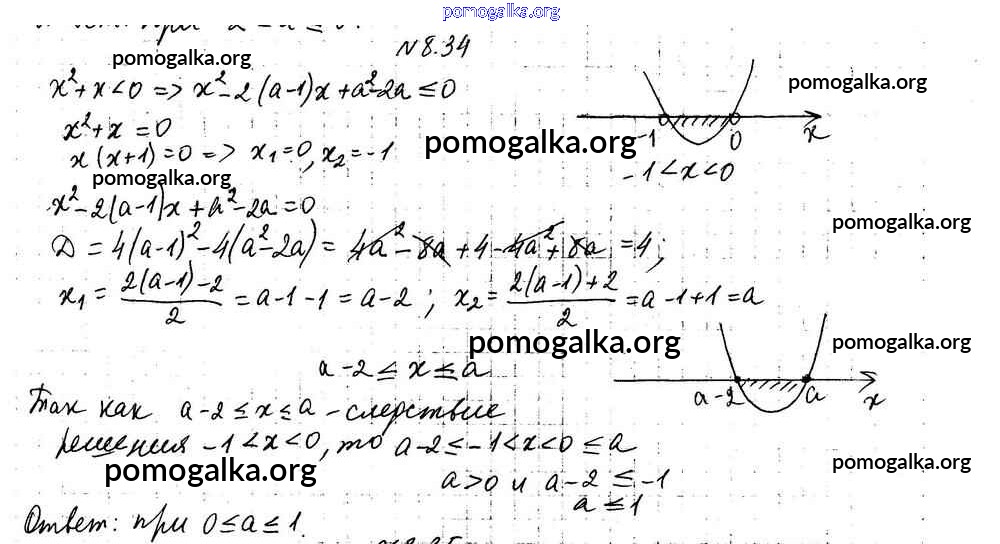 pomogalka.org
№ 8.34
pomogalka.org
pomogalka.org
x²+x<0 => x²-2(a-1)x+a²-2a ≤ 0
x²+x=0
x(x+1)=0 => x₁=0, x₂=-1
pomogalka.org
-1 0 x
-1<x<0
pomogalka.org
x²-2(a-1)x+a²-2a=0
pomogalka.org
D = 4(a-1)²-4(a²-2a) = 4a²-8a+4-4a²+8a = 4;
x₁ = 2(a-1)-2 / 2 = a-1-1 = a-2; x₂ = 2(a-1)+2 / 2 = a-1+1 = a
pomogalka.org
pomogalka.org
a-2 ≤ x ≤ a
a-2 a x
Так как a-2 ≤ x ≤ a - следствие
решения -1<x<0, то a-2 ≤ -1<x<0 ≤ a
pomogalka.org
pomogalka.org
a>0 и a-2 ≤ -1
a ≤ 1
Ответ: при 0 ≤ a ≤ 1.